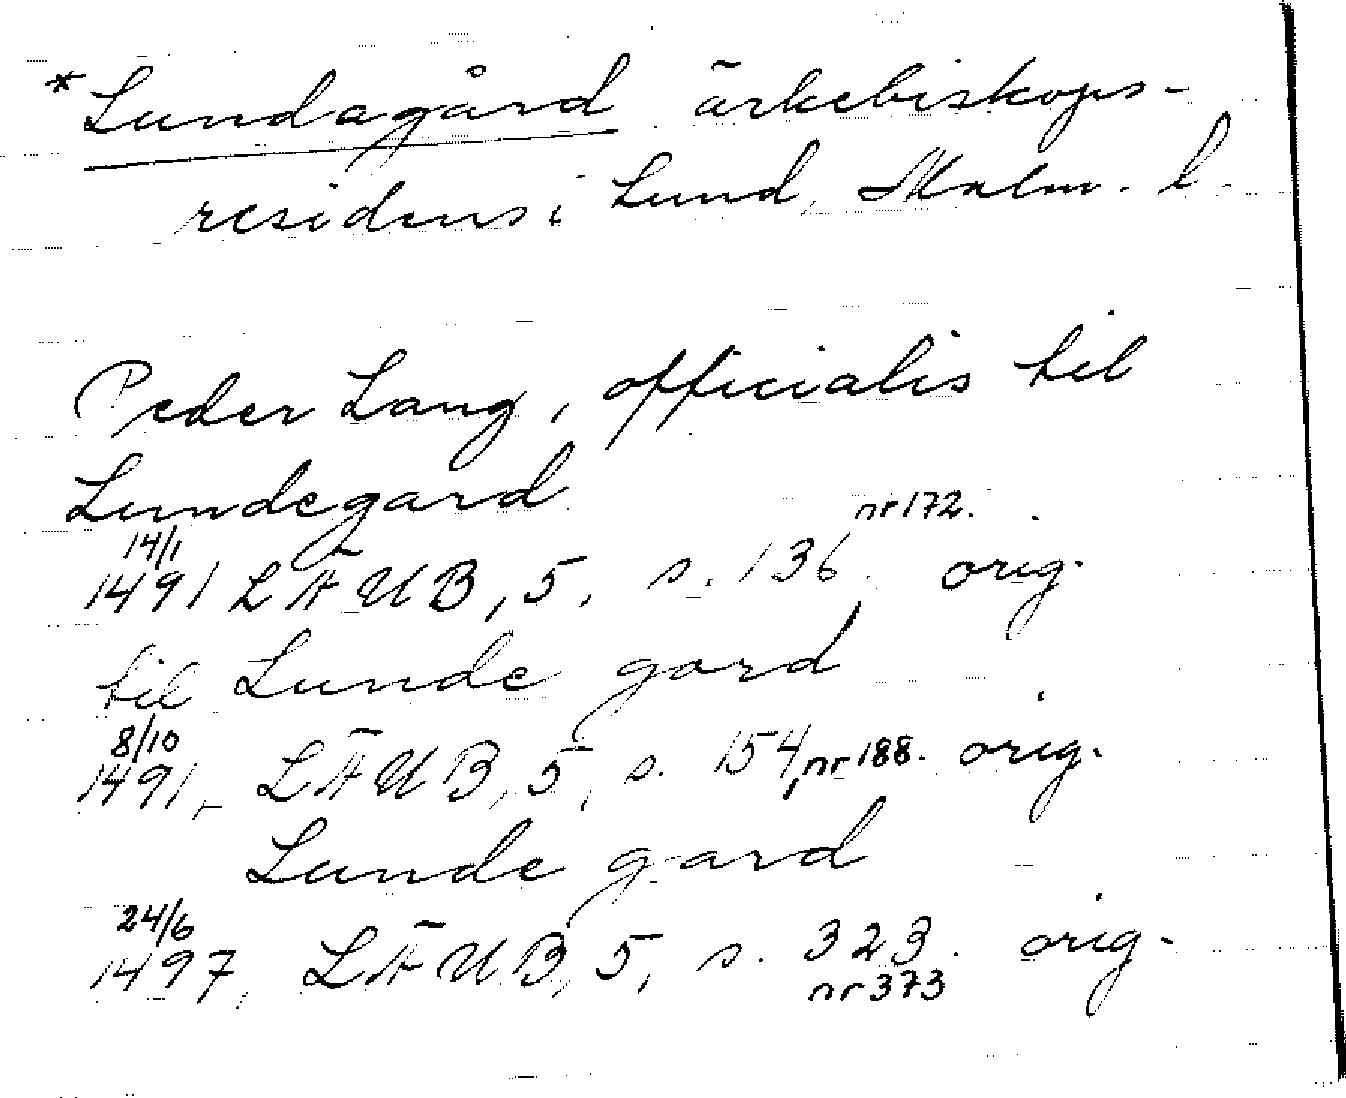 *Lundagård ärkebiskops-
residens i Lund, Malm. l.
Peder Lang, officialis til
Lundegard
nr 172.
14/1
1491 LÄUB, 5, s. 136. orig.
til Lunde gard
8/10
1491, LÄUB, 5, s. 154, nr 188. orig.
Lunde gard
24/6
1497, LÄUB, 5, s. 323. orig.
nr 373